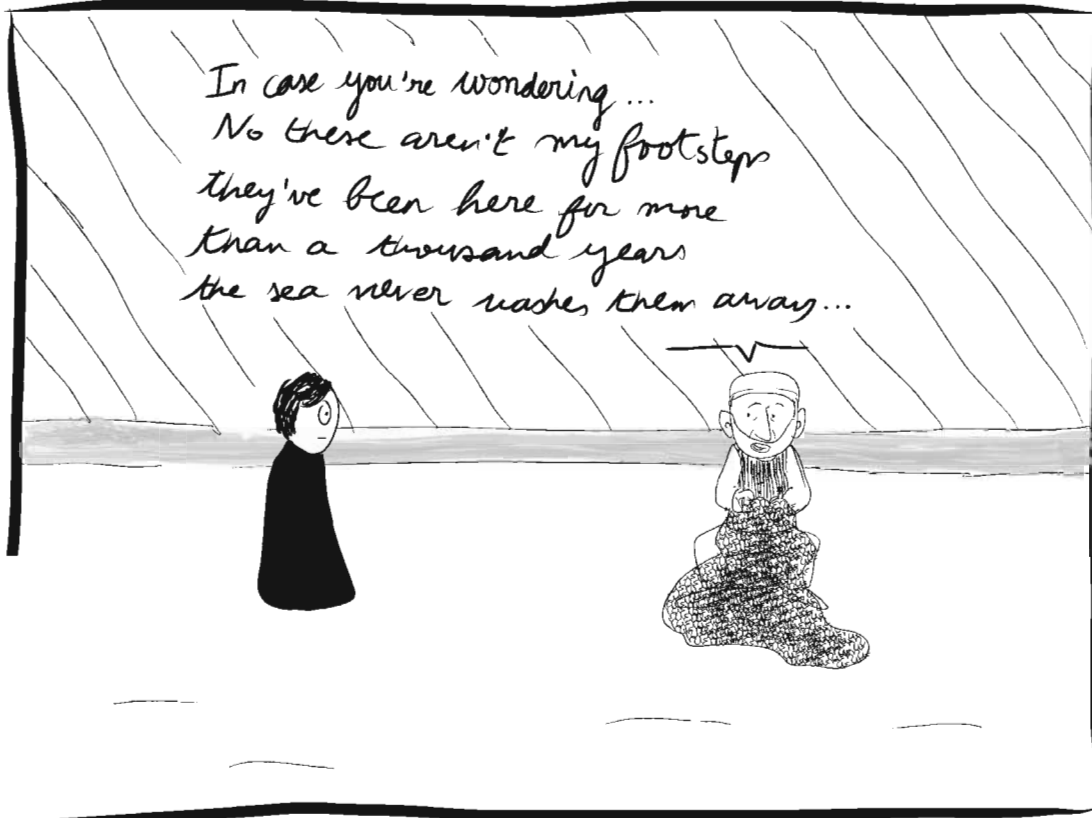 In case you're wondering...
No these aren't my footsteps
they've been here for more
than a thousand years
the sea never washes them away...